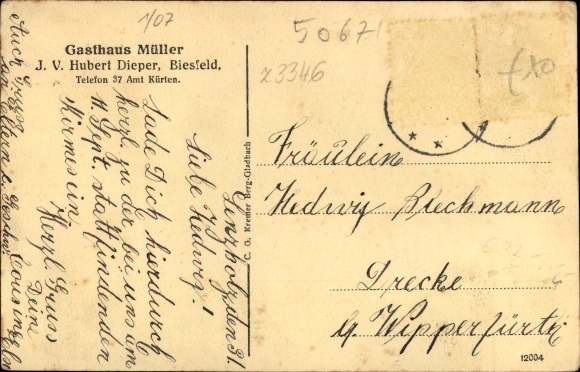 1/07
50671
z3346
Gasthaus Müller
J. V. Hubert Dieper, Biesfeld,
Telefon 37 Amt Kürten.
den 31.
Liebe Hedwig!
Lade Dich hierdurch
herzl. zu der bei uns am
11. Sept. stattfindenden
Kirmes ein
Herzl. Gruss
Deine
Cousine Els
Auch Gruss
an Eltern u. Geschw.
C. G. Kremer Berg-Gladbach
Fräulein
Hedwig Blechmann
Drecke
b/ Wipperfürth
12004